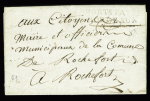 aux Citoyens
Maire et officiers
municipaux de la Commune
De Rochefort
a Rochefort